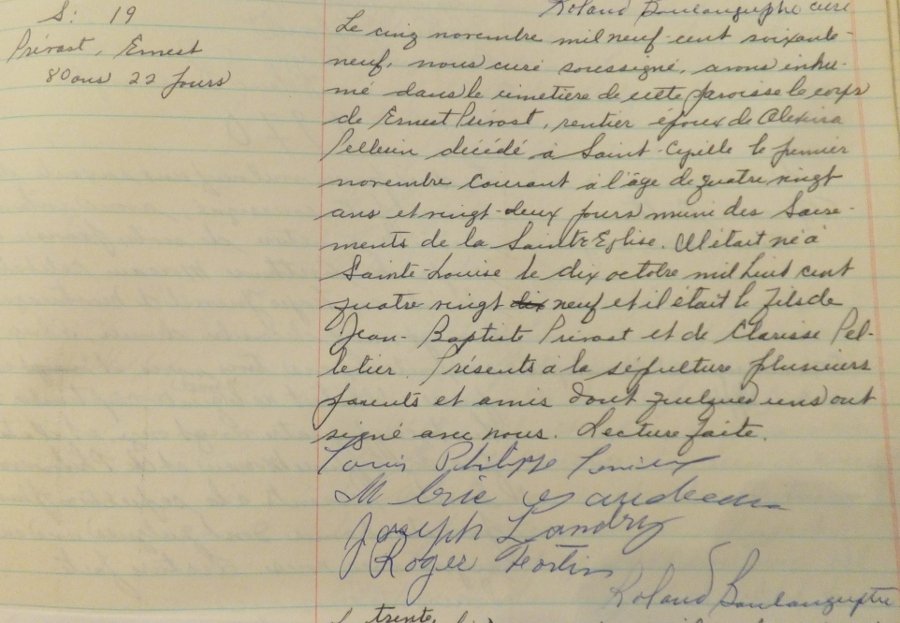 Roland Boulanger ptre curé
S: 19
Prévost, Ernest
80 ans 22 jours
Le cinq novembre mil neuf cent soixante-
neuf, nous curé soussigné, avons inhu-
mé dans le cimetière de cette paroisse le corps
de Ernest Prévost, rentier époux de Alexina
Pellerin décédé à Saint-Cyrille le premier
novembre courant à l'âge de quatre vingt
ans et vingt-deux jours muni des Sacre-
ments de la Sainte Eglise. Il était né à
Sainte-Louise le dix octobre mil huit cent
quatre vingt dix neuf et il était le fils de
Jean-Baptiste Prévost et de Clarisse Pel-
letier. Présents à la sépulture plusieurs
parents et amis dont quelques uns ont
signé avec nous. Lecture faite.
Louis Philippe
M
Joseph Landry
Roger Fortin
Roland Boulanger ptre
trente